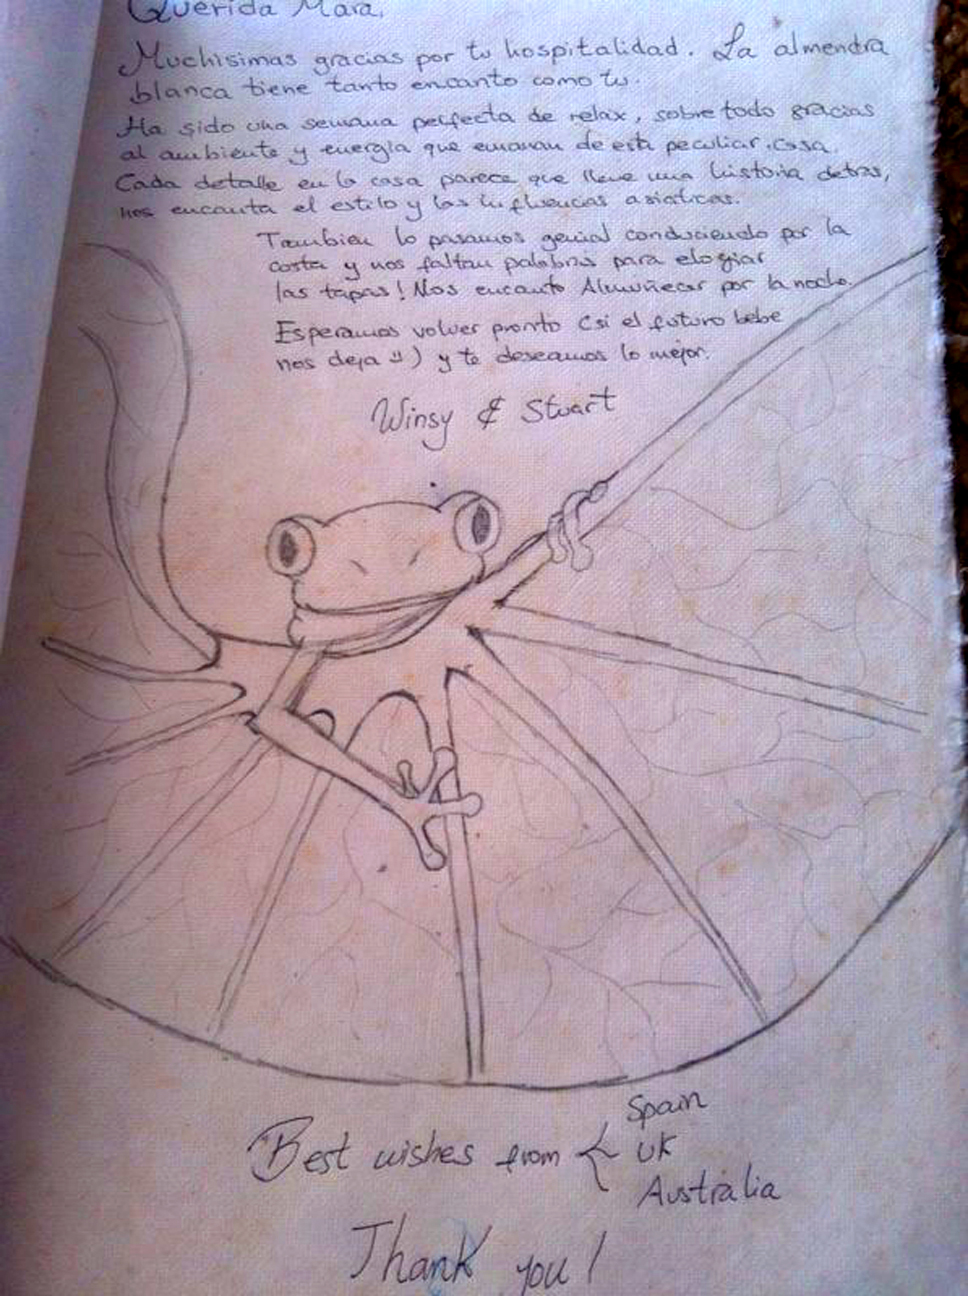 Querida Mara,
Muchisimas gracias por tu hospitalidad. La almendra
blanca tiene tanto encanto como tu.
Ha sido una semana perfecta de relax, sobre todo gracias
al ambiente y energia que emanan de esta peculiar casa.
Cada detalle en la casa parece que lleve una historia detras,
nos encanta el estilo y las influencias asiaticas.
Tambien lo pasamos genial conduciendo por la
costa y nos faltan palabras para elogiar
las tapas! Nos encanto Almuñecar por la noche.
Esperamos volver pronto (si el futuro bebe
nos deja) y te deseamos lo mejor.
Winsy & Stuart
Best wishes from
Spain
UK
Australia
Thank you!